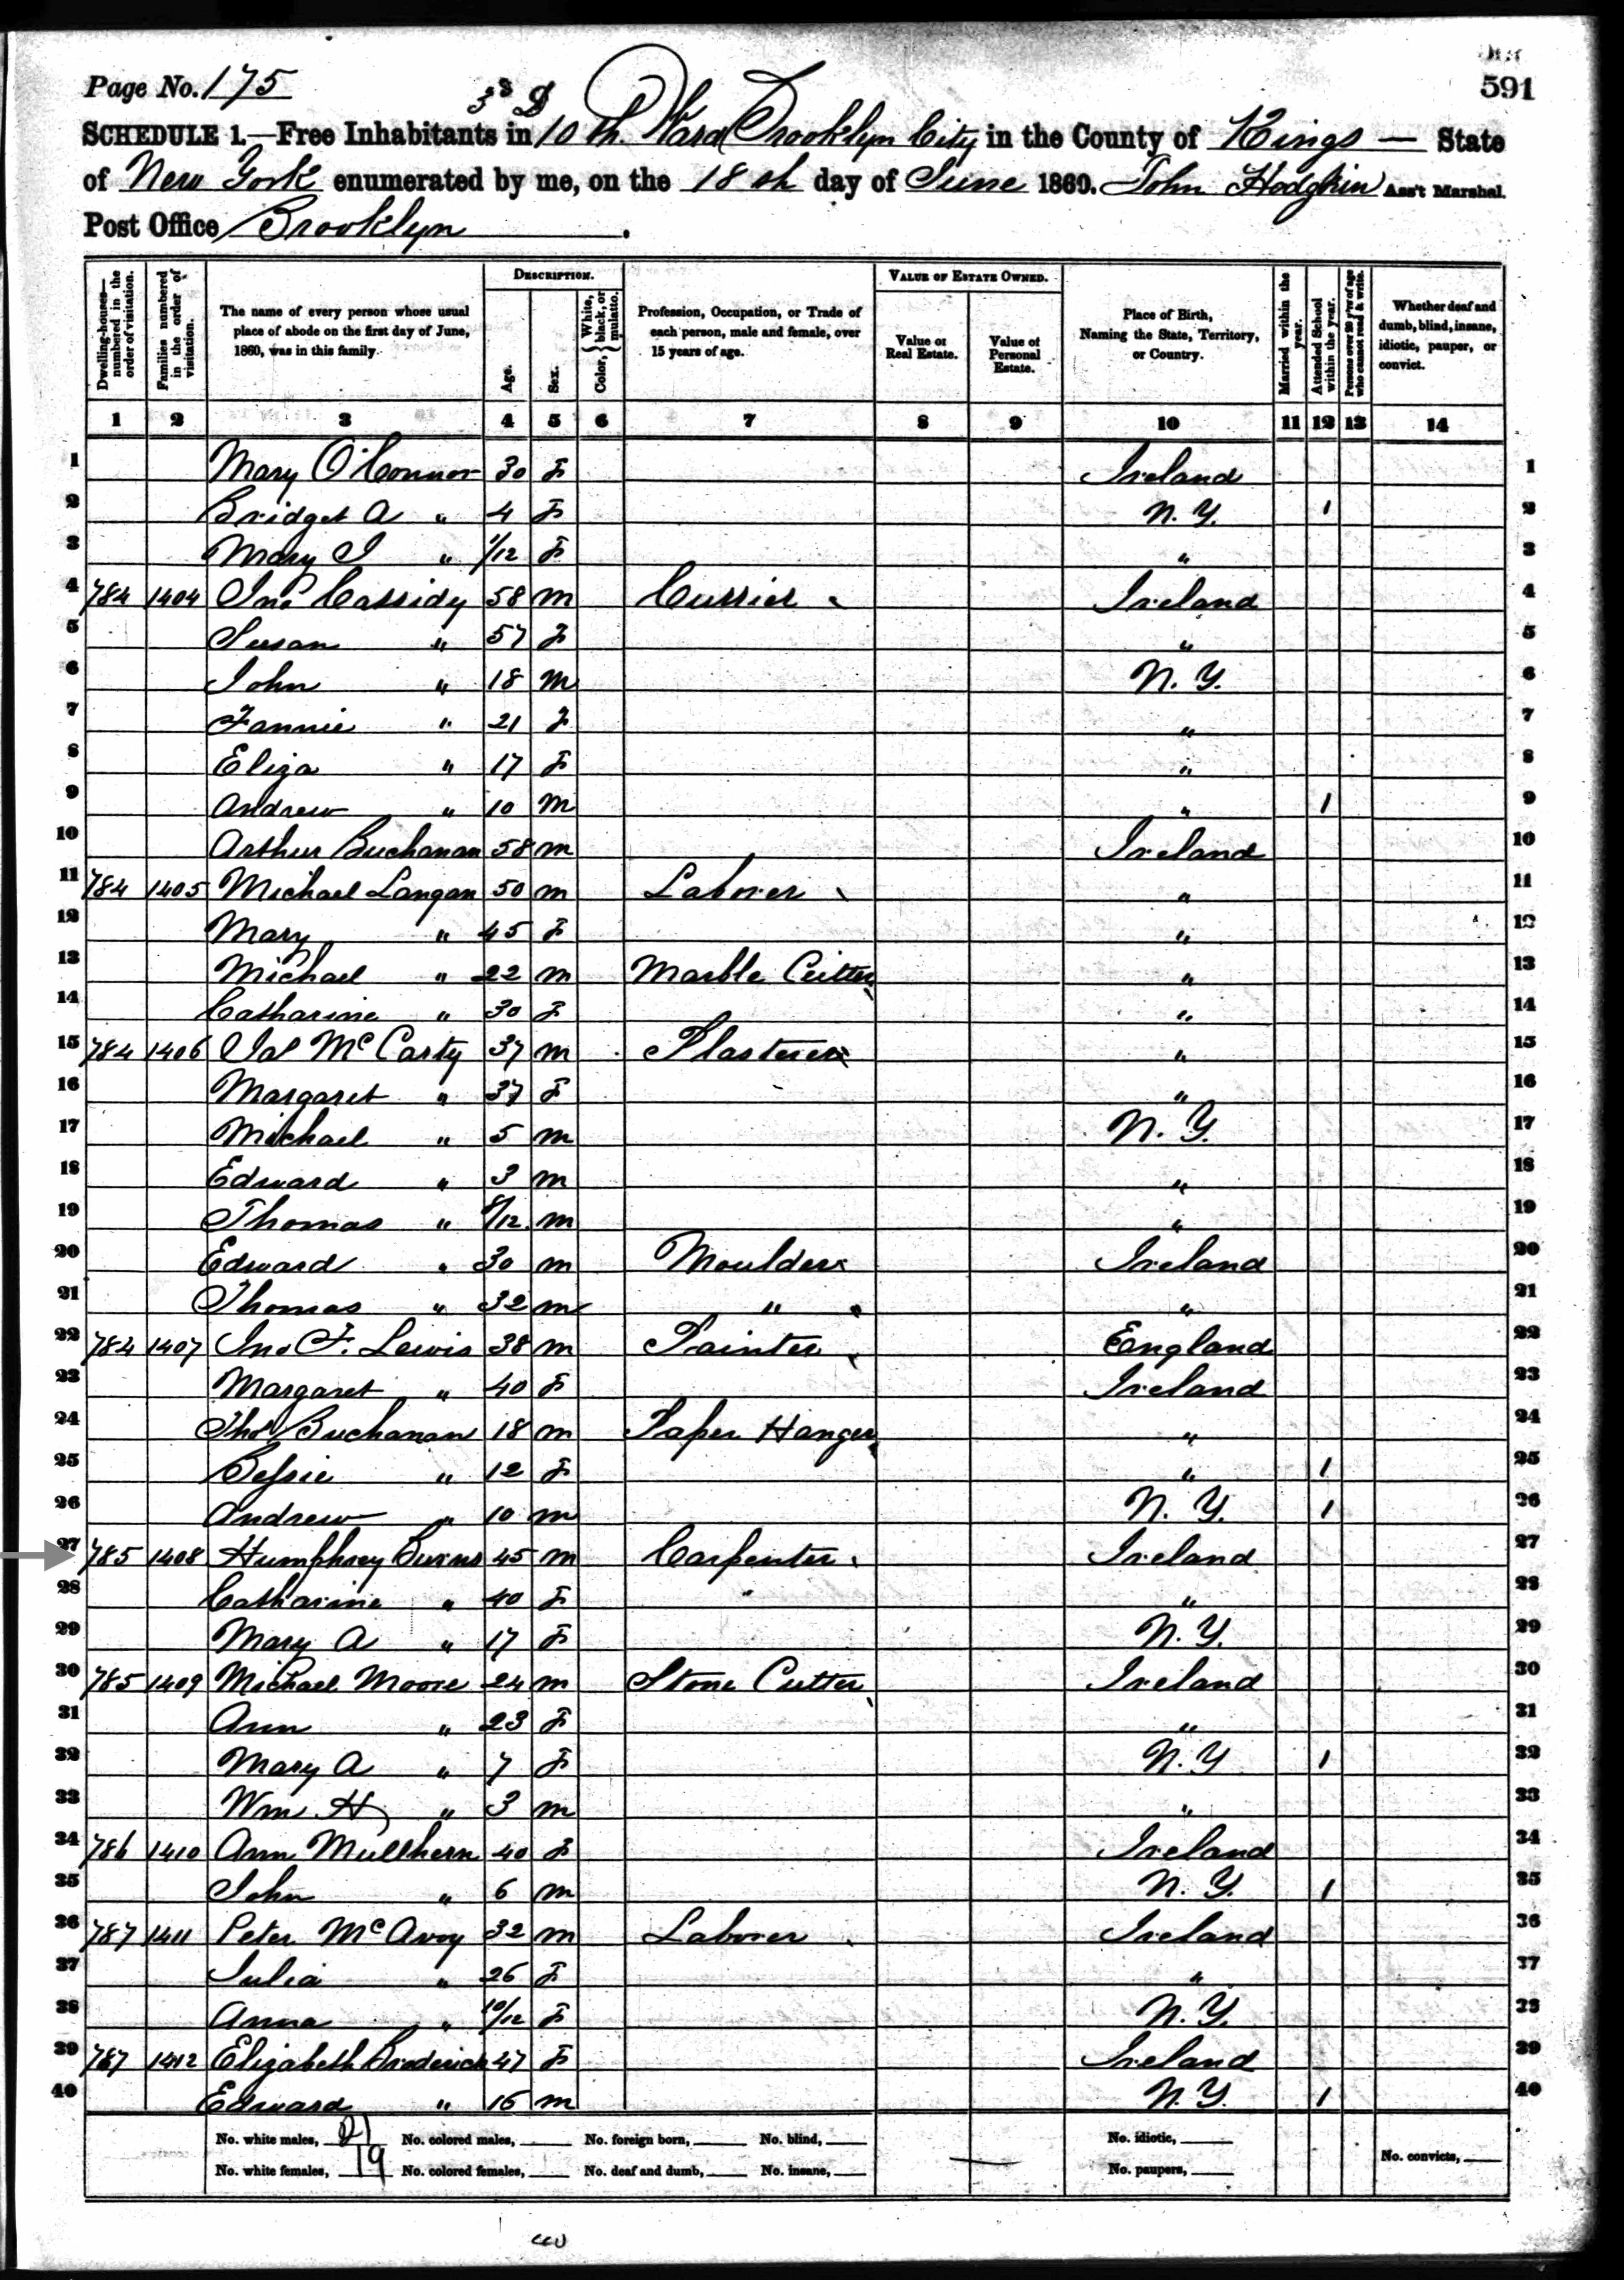 Page No. 175
591
3d D
SCHEDULE 1.—Free Inhabitants in 10th Ward Brooklyn City in the County of Kings — State
of New York enumerated by me, on the 18th day of June 1860. John Hodgkin Ass't Marshal.
Post Office Brooklyn.
Dwelling-houses—numbered in the order of visitation.
Families numbered in the order of visitation.
The name of every person whose usual place of abode on the first day of June, 1860, was in this family.
DESCRIPTION.
Age.
Sex.
Color, { White, black, or mulatto.
Profession, Occupation, or Trade of each person, male and female, over 15 years of age.
VALUE OF ESTATE OWNED.
Value of Real Estate.
Value of Personal Estate.
Place of Birth, Naming the State, Territory, or Country.
Married within the year.
Attended School within the year.
Persons over 20 y'rs of age who cannot read & write.
Whether deaf and dumb, blind, insane, idiotic, pauper, or convict.
1 2 3 4 5 6 7 8 9 10 11 12 13 14
1 Mary O'Connor 30 F Ireland 1
2 Bridget A " 4 F N.Y. 1 2
3 Mary J " 1/12 F " 3
4 784 1404 Jno Cassidy 58 m Currier Ireland 4
5 Susan " 57 F " 5
6 John " 18 m N.Y. 6
7 Fannie " 21 F " 7
8 Eliza " 17 F " 8
9 Andrew " 10 m " 1 9
10 Arthur Buchanan 58 m Ireland 10
11 784 1405 Michael Langan 50 m Laborer " 11
12 Mary " 45 F " 12
13 Michael " 22 m Marble Cutter " 13
14 Catharine " 30 F " 14
15 784 1406 Jas McCarty 37 m Plasterer " 15
16 Margaret " 37 F " 16
17 Michael " 5 m N.Y. 17
18 Edward " 3 m " 18
19 Thomas " /12 m " 19
20 Edward " 30 m Moulder Ireland 20
21 Thomas " 32 m " " 21
22 784 1407 Jno F. Lewis 38 m Painter England 22
23 Margaret " 40 F Ireland 23
24 Thos Buchanan 18 m Paper Hanger " 24
25 Bessie " 12 F " 1 25
26 Andrew " 10 m N.Y. 1 26
27 785 1408 Humphrey Burns 45 m Carpenter Ireland 27
28 Catharine " 40 F " 28
29 Mary A " 17 F N.Y. 29
30 785 1409 Michael Moore 24 m Stone Cutter Ireland 30
31 Ann " 23 F " 31
32 Mary A " 7 F N.Y 1 32
33 Wm H " 3 m " 33
34 786 1410 Ann Mullhern 40 F Ireland 34
35 John " 6 m N.Y. 1 35
36 787 1411 Peter McAvoy 32 m Laborer Ireland 36
37 Julia " 26 F " 37
38 Anna " 10/12 F N.Y. 38
39 787 1412 Elizabeth Broderick 47 F Ireland 39
40 Edward " 16 m N.Y. 1 40
No. white males, 21 No. colored males, No. foreign born, No. blind, No. idiotic,
No. white females, 19 No. colored females, No. deaf and dumb, No. insane, No. paupers, No. convicts,